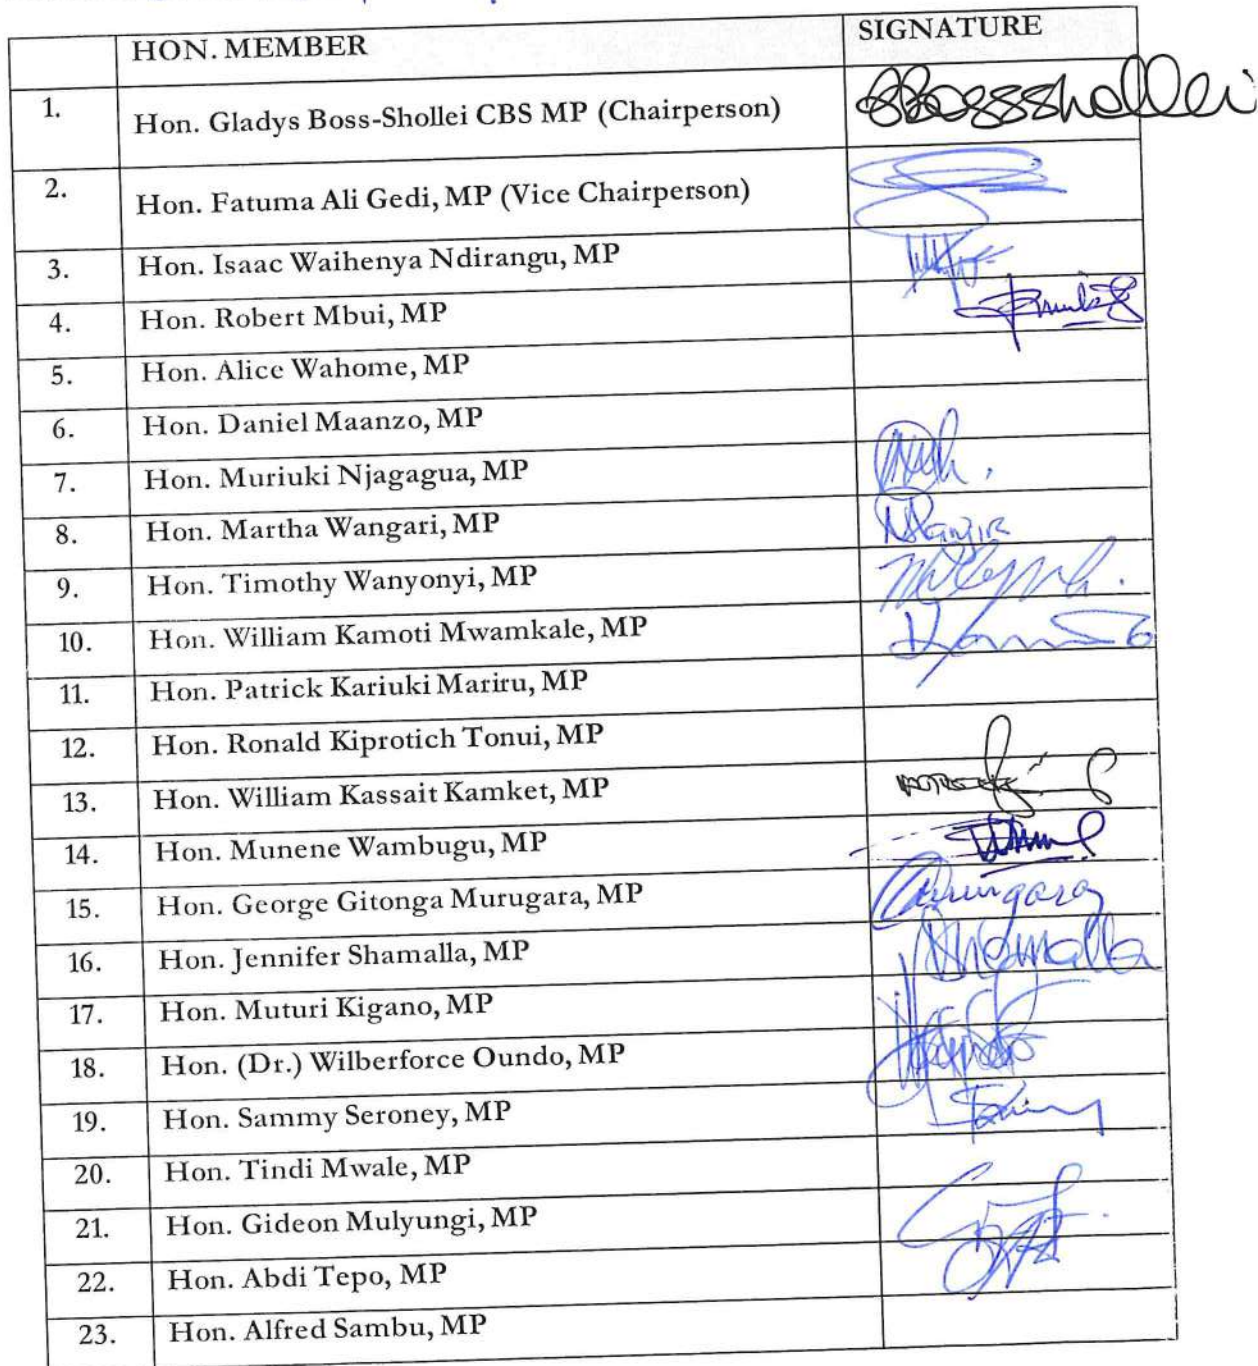 HON. MEMBER SIGNATURE
1. Hon. Gladys Boss-Shollei CBS MP (Chairperson) GBossshollei
2. Hon. Fatuma Ali Gedi, MP (Vice Chairperson)
3. Hon. Isaac Waihenya Ndirangu, MP
4. Hon. Robert Mbui, MP
5. Hon. Alice Wahome, MP
6. Hon. Daniel Maanzo, MP
7. Hon. Muriuki Njagagua, MP
8. Hon. Martha Wangari, MP
9. Hon. Timothy Wanyonyi, MP
10. Hon. William Kamoti Mwamkale, MP
11. Hon. Patrick Kariuki Mariru, MP
12. Hon. Ronald Kiprotich Tonui, MP
13. Hon. William Kassait Kamket, MP
14. Hon. Munene Wambugu, MP
15. Hon. George Gitonga Murugara, MP
16. Hon. Jennifer Shamalla, MP
17. Hon. Muturi Kigano, MP
18. Hon. (Dr.) Wilberforce Oundo, MP
19. Hon. Sammy Seroney, MP
20. Hon. Tindi Mwale, MP
21. Hon. Gideon Mulyungi, MP
22. Hon. Abdi Tepo, MP
23. Hon. Alfred Sambu, MP